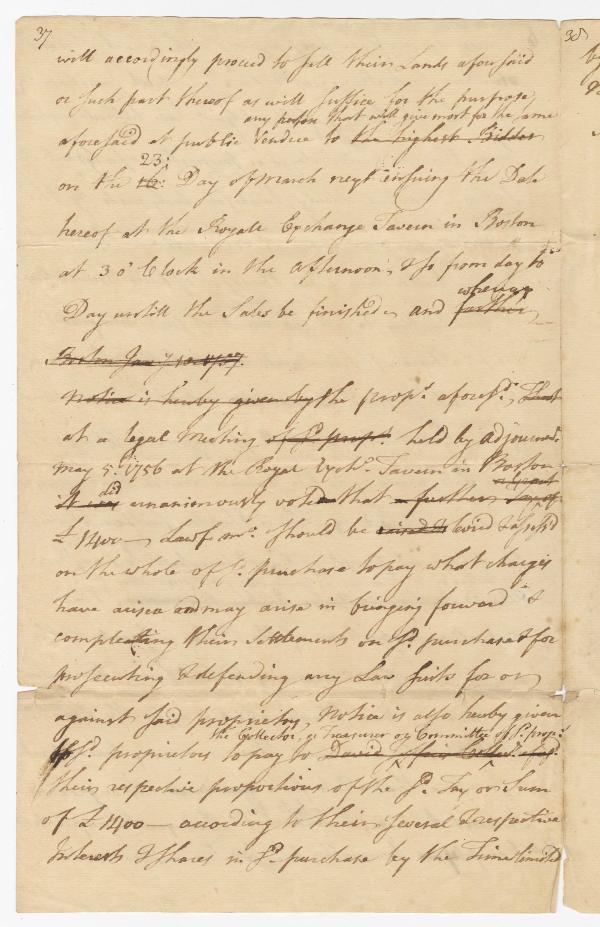 37
will accordingly proceed to sell their Lands aforesaid
or such part thereof as will suffice for the purpose
any person that will give most for the same
aforesaid at public Vendue to the highest Bidder
23:
on the 16: Day of March next ensuing the Date
hereof at the Royall Exchange Tavern in Boston
at 3 o'Clock in the afternoon, & so from day to
Day untill the Sales be finished and further
whereas
Boston Jany
Notice is hereby given by the proprs. aforesd., That
at a legal meeting of sd. propts. held by adjournmt.
may 5: 1756 at the Royal Exche. Tavern in Boston
did
it was unanimously voted that a further Tax of
£1400— Lawf mo. Should be raised & levied & assess'd
on the whole of sd. purchase to pay what charges
have arisen and may arise in bringing forward &
compleating their settlements on sd. purchase & for
prosecuting & defending any Law suits for or
against said propriety, Notice is also hereby given
the Collector, or Treasurer or Committee of sd. proprs
sd. proprietors to pay to David
their respective proportions of the sd. Tax or Sum
of £1400— according to their several & respective
Interests & Shares in sd. purchase by the Time limited
38